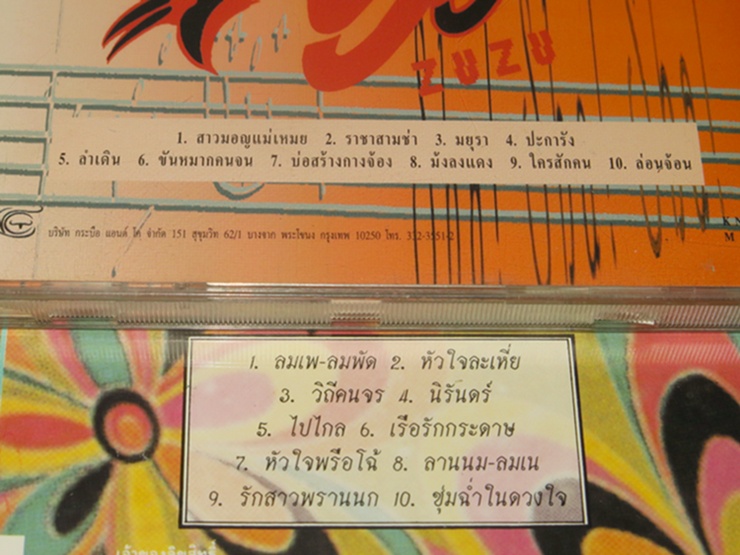 ZUZU
1. สาวมอญแม่เหมย 2. ราชาสามช่า 3. มยุรา 4. ปะการัง
5. ลำเดิน 6. ขันหมากคนจน 7. บ่อสร้างกางจ้อง 8. ม้งลงแดง 9. ใครสักคน 10. ล่อนจ้อน
บริษัท กระบือ แอนด์ โค จำกัด 151 สุขุมวิท 62/1 บางจาก พระโขนง กรุงเทพ 10250 โทร. 332-3551-2
1. ลมเพ-ลมพัด 2. หัวใจละเหี่ย
3. วิถีคนจร 4. นิรันดร์
5. ไปไกล 6. เรือรักกระดาษ
7. หัวใจพรือโฉ้ 8. ลานนม-ลมเน
9. รักสาวพรานนก 10. ชุ่มฉ่ำในดวงใจ
เจ้าของลิขสิทธิ์